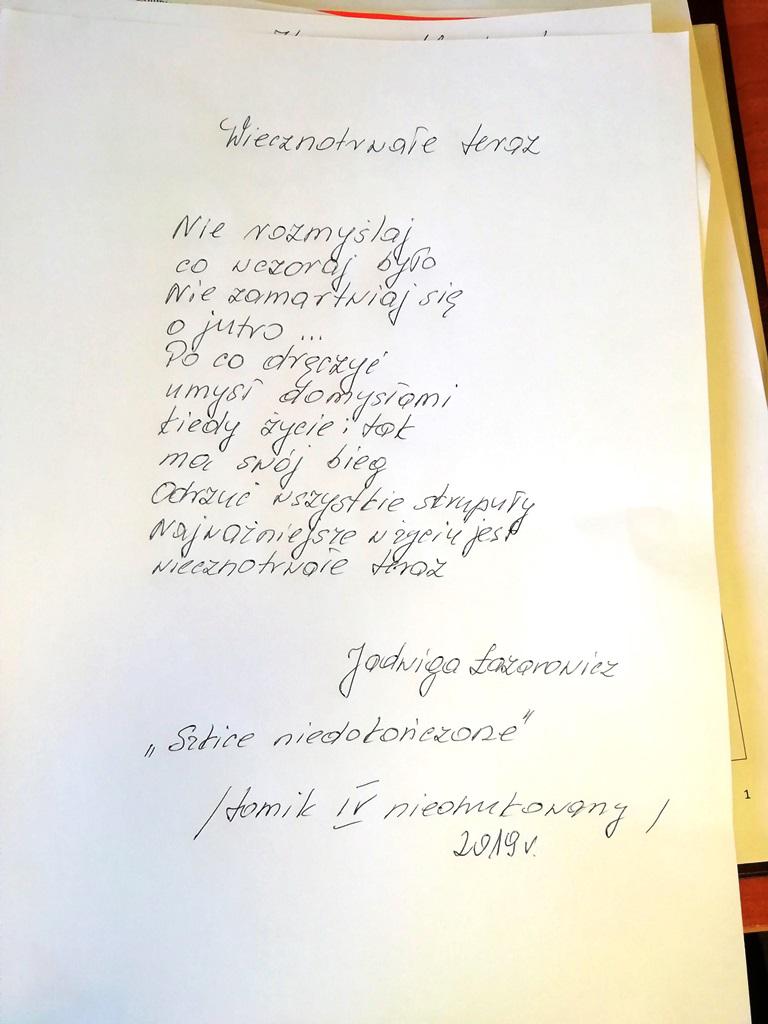 Wiecznotrwałe teraz
Nie rozmyślaj
co wczoraj było
Nie zamartwiaj się
o jutro ...
Po co dręczyć
umysł domysłami
kiedy życie i tak
ma swój bieg
Odrzuć wszystkie skrupuły
Najważniejsze w życiu jest
wiecznotrwałe teraz
Jadwiga Łazarowicz
„Szkice niedokończone"
/tomik IV niedrukowany/
2019r.
1